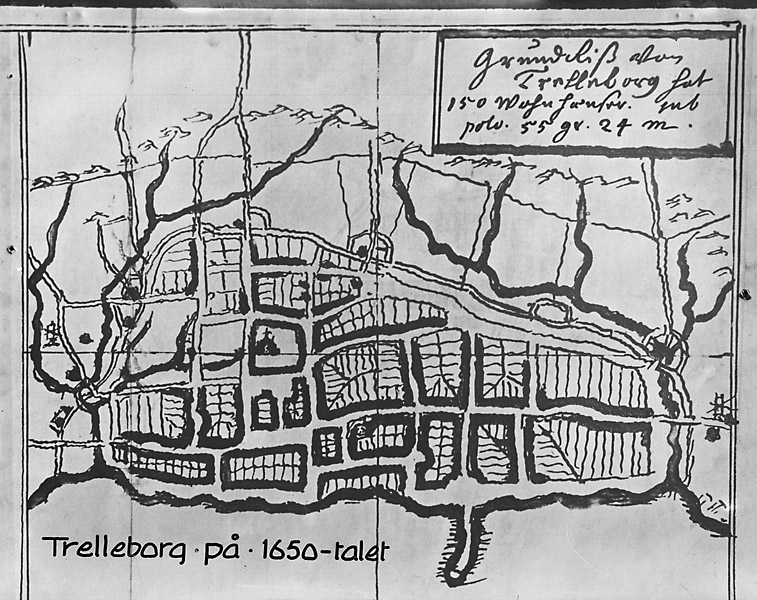 Grundriß von
Trelleborg hat
150 Wohnhæuser.
polo. 55 gr. 24 m.
Trelleborg · på · 1650-talet